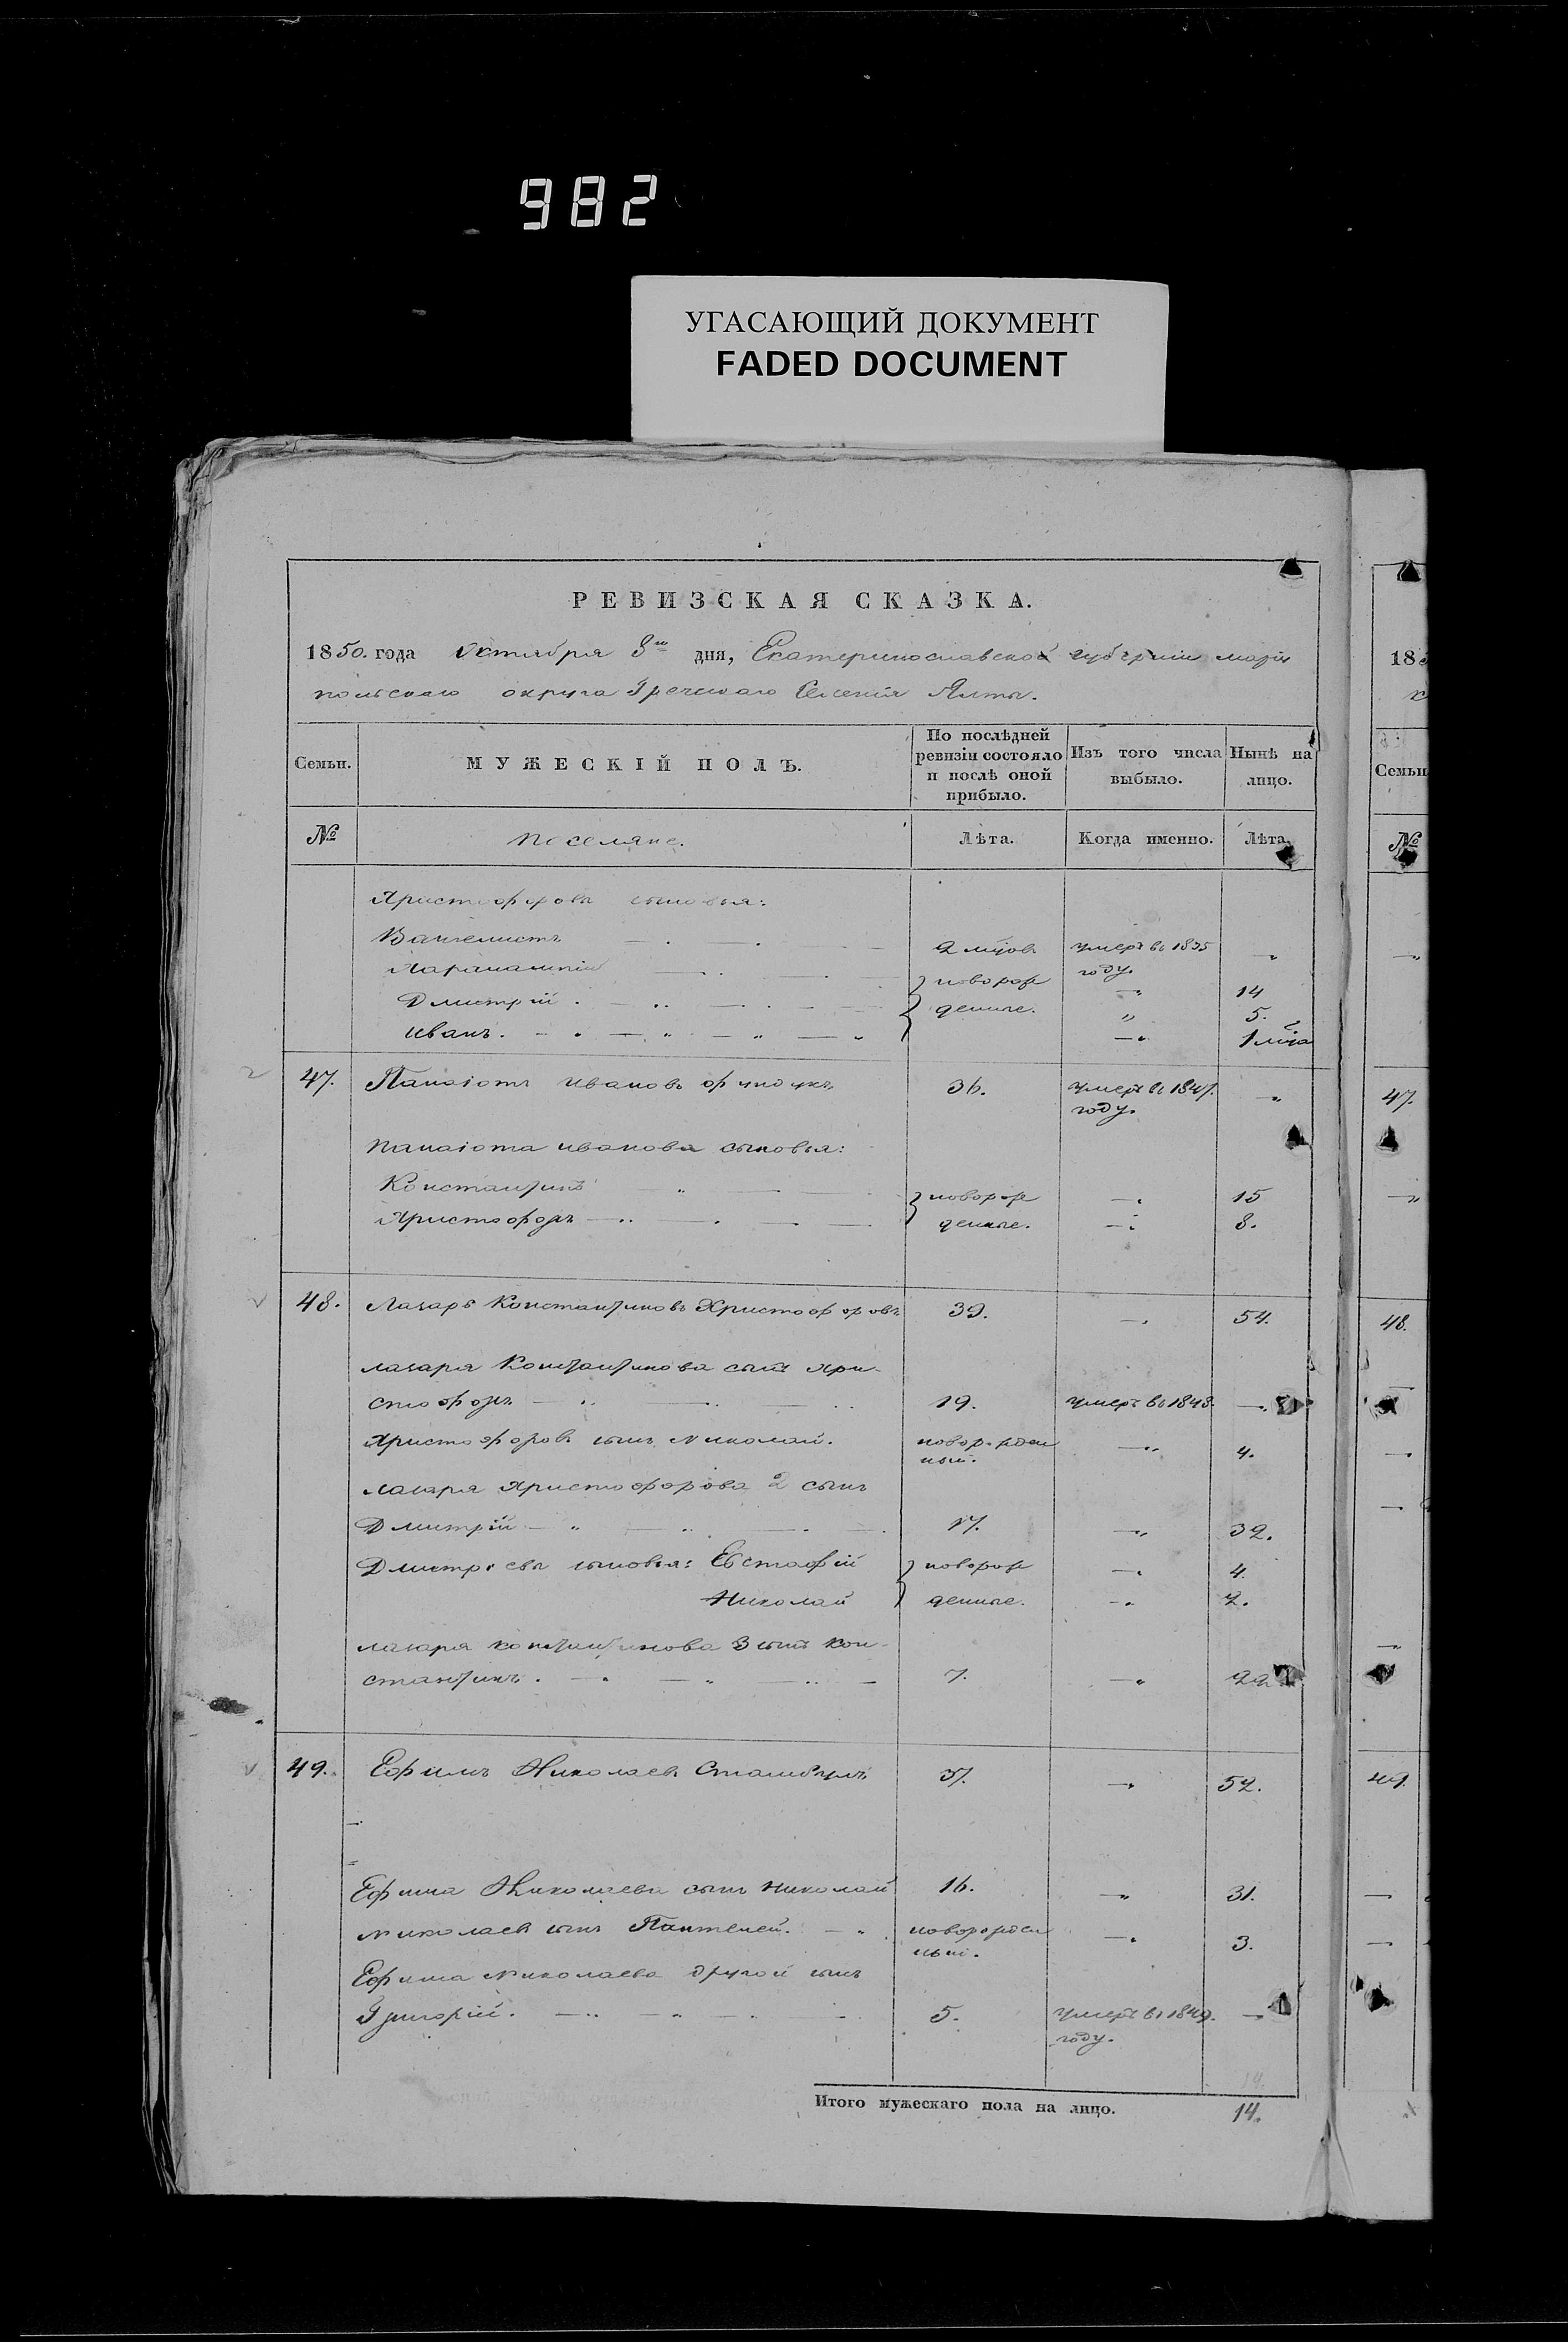 982
УГАСАЮЩИЙ ДОКУМЕНТ
FADED DOCUMENT
РЕВИЗСКАЯ СКАЗКА.
1850. года Октября 8го дня, Екатеринославской губерніи маріу
польскаго округа Греческаго Селенія Ялты.
Семьи. МУЖЕСКІЙ ПОЛЪ. По послѣдней ревизіи состояло и послѣ оной прибыло. Изъ того числа выбыло. Нынѣ на лицо.
№ Поселяне. Лѣта. Когда именно. Лѣта.
Христофорова сыновья:
Вангелистъ 2 мцов умеръ въ 1835 году. —„
Харалампій } новорож —„ 14
Дмитрій } денные. „ 5.
Иванъ. —„ 1 мца
47. Панаіотъ Ивановъ 36. умеръ въ 1847. году. —„
Панаіота Иванова сыновья:
Константинъ } новорож —„ 15
Христофоръ } денные. —„ 8.
48. Лазарь Константиновъ Христофоровъ 39. —„ 54.
Лазаря Константинова сынъ Хри-
стофоръ 19. умеръ въ 1848. —„
Христофоровъ сынъ Николай. новорожден ный. —„ 4.
Лазаря Христофорова 2 сынъ
Дмитрій 17. —„ 32.
Дмитріевы сыновья: Евстафій } новорож —„ 4.
Николай } денные. —„ 2.
Лазаря Константинова 3 сынъ Кон-
стантинъ. 7. —„ 22
49. Ефимъ Николаевъ Стамбулъ 37. —„ 52.
Ефима Николаева сынъ Николай 16. —„ 31.
Николаевъ сынъ Пантелей. новорожден ный. —„ 3.
Ефима Николаева другой сынъ
Григорій. 5. умеръ въ 1849. году. —„
Итого мужескаго пола на лицо. 14.
18
Семьи
№
47.
48.
49.